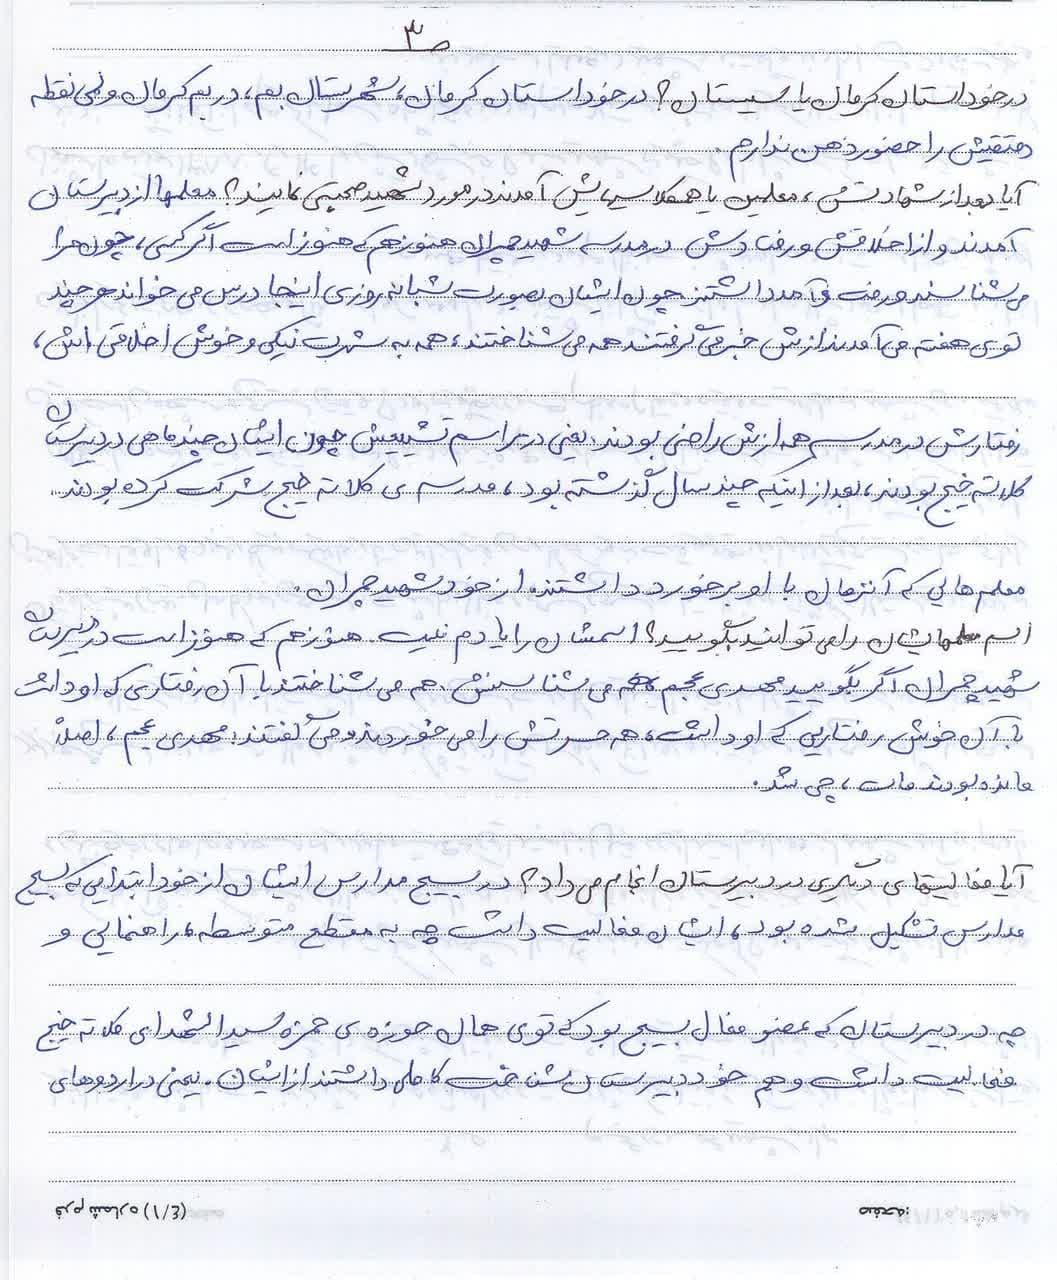 ص ۳
در خود استان کرمان یا سیستان؟ در خود استان کرمان، شهرستان بم، در بم کرمان ولی نقطه
دقیقش را حضور ذهن ندارم.
آیا بعد از شهادتش، معلمین یا همکلاسیهایش آمدند در مورد شهید صحبتی نمایند؟ معلمها از دبیرستان
آمدند و از اخلاقش و رفتارش در مدرسه شهید چمران هنوز هم که هنوز است اگر کسی، چون مرا
می‌شناسند و رفت و آمد داشتند چون ایشان بصورت شبانه روزی اینجا درس می خواند هر چند
توی هفته می‌آمدند ازش خبر می گرفتند همه می شناختند، همه به شهرت نیکی و خوش اخلاقی اش،
رفتارش در مدرسه همه ازش راضی بودند. یعنی در مراسم تشییعش چون ایشان چند ماهی در دبیرستان
کلاته خیج بودند، بعد از اینکه چند سال گذشته بود، مدرسه ی کلاته خیج شرکت کرده بودند.
معلم هایی که آنزمان با او برخورد داشتند. از خود شهید چمران.
اسم معلمهایشان را می توانید بگویید؟ اسمشان را یادم نیست. هنوز هم که هنوز است در دبیرستان
شهید چمران اگر بگویید مهدی عجم همه می شناسنش. همه می شناختند با آن رفتاری که او داشت
با آن خوش رفتاریی که او داشت، همه حسرتش را می خوردند و می گفتند: مهدی عجم، اصلاً
مانده بودند مات، چی شد.
آیا فعالیتهای دیگری در دبیرستان انجام می داد؟ در بسیج مدارس ایشان از خود ابتدایی که بسیج
مدارس تشکیل شده بود، ایشان فعالیت داشت چه به مقطع متوسطه، راهنمایی و
چه در دبیرستان که عضو فعال بسیج بود که توی همان حوزه ی حمزه سیدالشهدای کلاته خیج
فعالیت داشت و هم خود دبیرستان شناخت کاملی داشتند از ایشان. یعنی در اردوهای
صفحه:
فرم شماره (۱/٤)